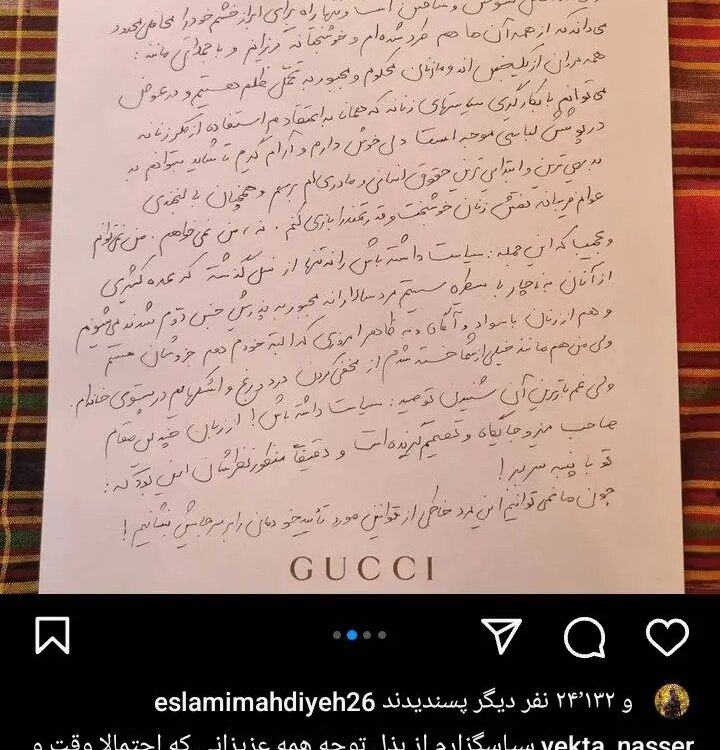 می‌داند که از همه آن ها هم طرد شده‌ام و خوشبختانه فرزندانم و با جملاتی مانند:
همه مردان از یک جنس اند و ما زنان محکوم و مجبور به تحمل ظلم هستیم و در عوض
می‌توانیم با بکارگیری سیاستهای زنانه که همانا به اعتقادم استفاده از مکر زنانه
در پوشش لباسی موجه است دلی خوش دارم و آرام گیرم تا شاید بتوانم به
بدیهی ترین و ابتدایی ترین حقوق انسانی و مادری‌ام برسم و همچنان با لبخندی
عوام فریبانه نقش زنان خوشبخت و قدرتمند را بازی کنم. نه، من نمی‌خواهم. من نمی‌توانم
و عجیبا که این جمله: سیاست داشته باش را نه تنها از نسل گذشته که عده کثیری
از آنان به ناچار با سیطره سیستم مردسالارانه مجبور به پذیرش جنس دوم شدند می‌شنوم
و هم از زنان با سواد و آگاه و به ظاهر امروزی که البته خودم هم جزوشان هستم
ولی من هم مانند خیلی از شما خسته شدم از مخفی کردن درد و رنج و اشکهایم در پستوی خانه‌ام.
ولی غم بارترین آن شنیدن توصیه: سیاست داشته باش! از زبان چندین مقام
صاحب میز و جایگاه و تصمیم گیرنده است و دقیقاً منظور نظرشان این بود که:
تو با پنبه سر ببر!
چون ما نمی توانیم این مرد خاطی از قوانین مورد تأیید خودمان را بر سر جایش بنشانیم!
GUCCI
و ۲۴٬۱۳۲ نفر دیگر پسندیدند eslamimahdiyeh26
yekta_nasser سپاسگزارم از بذل توجه همه عزیزانی که احتمالا وقت و